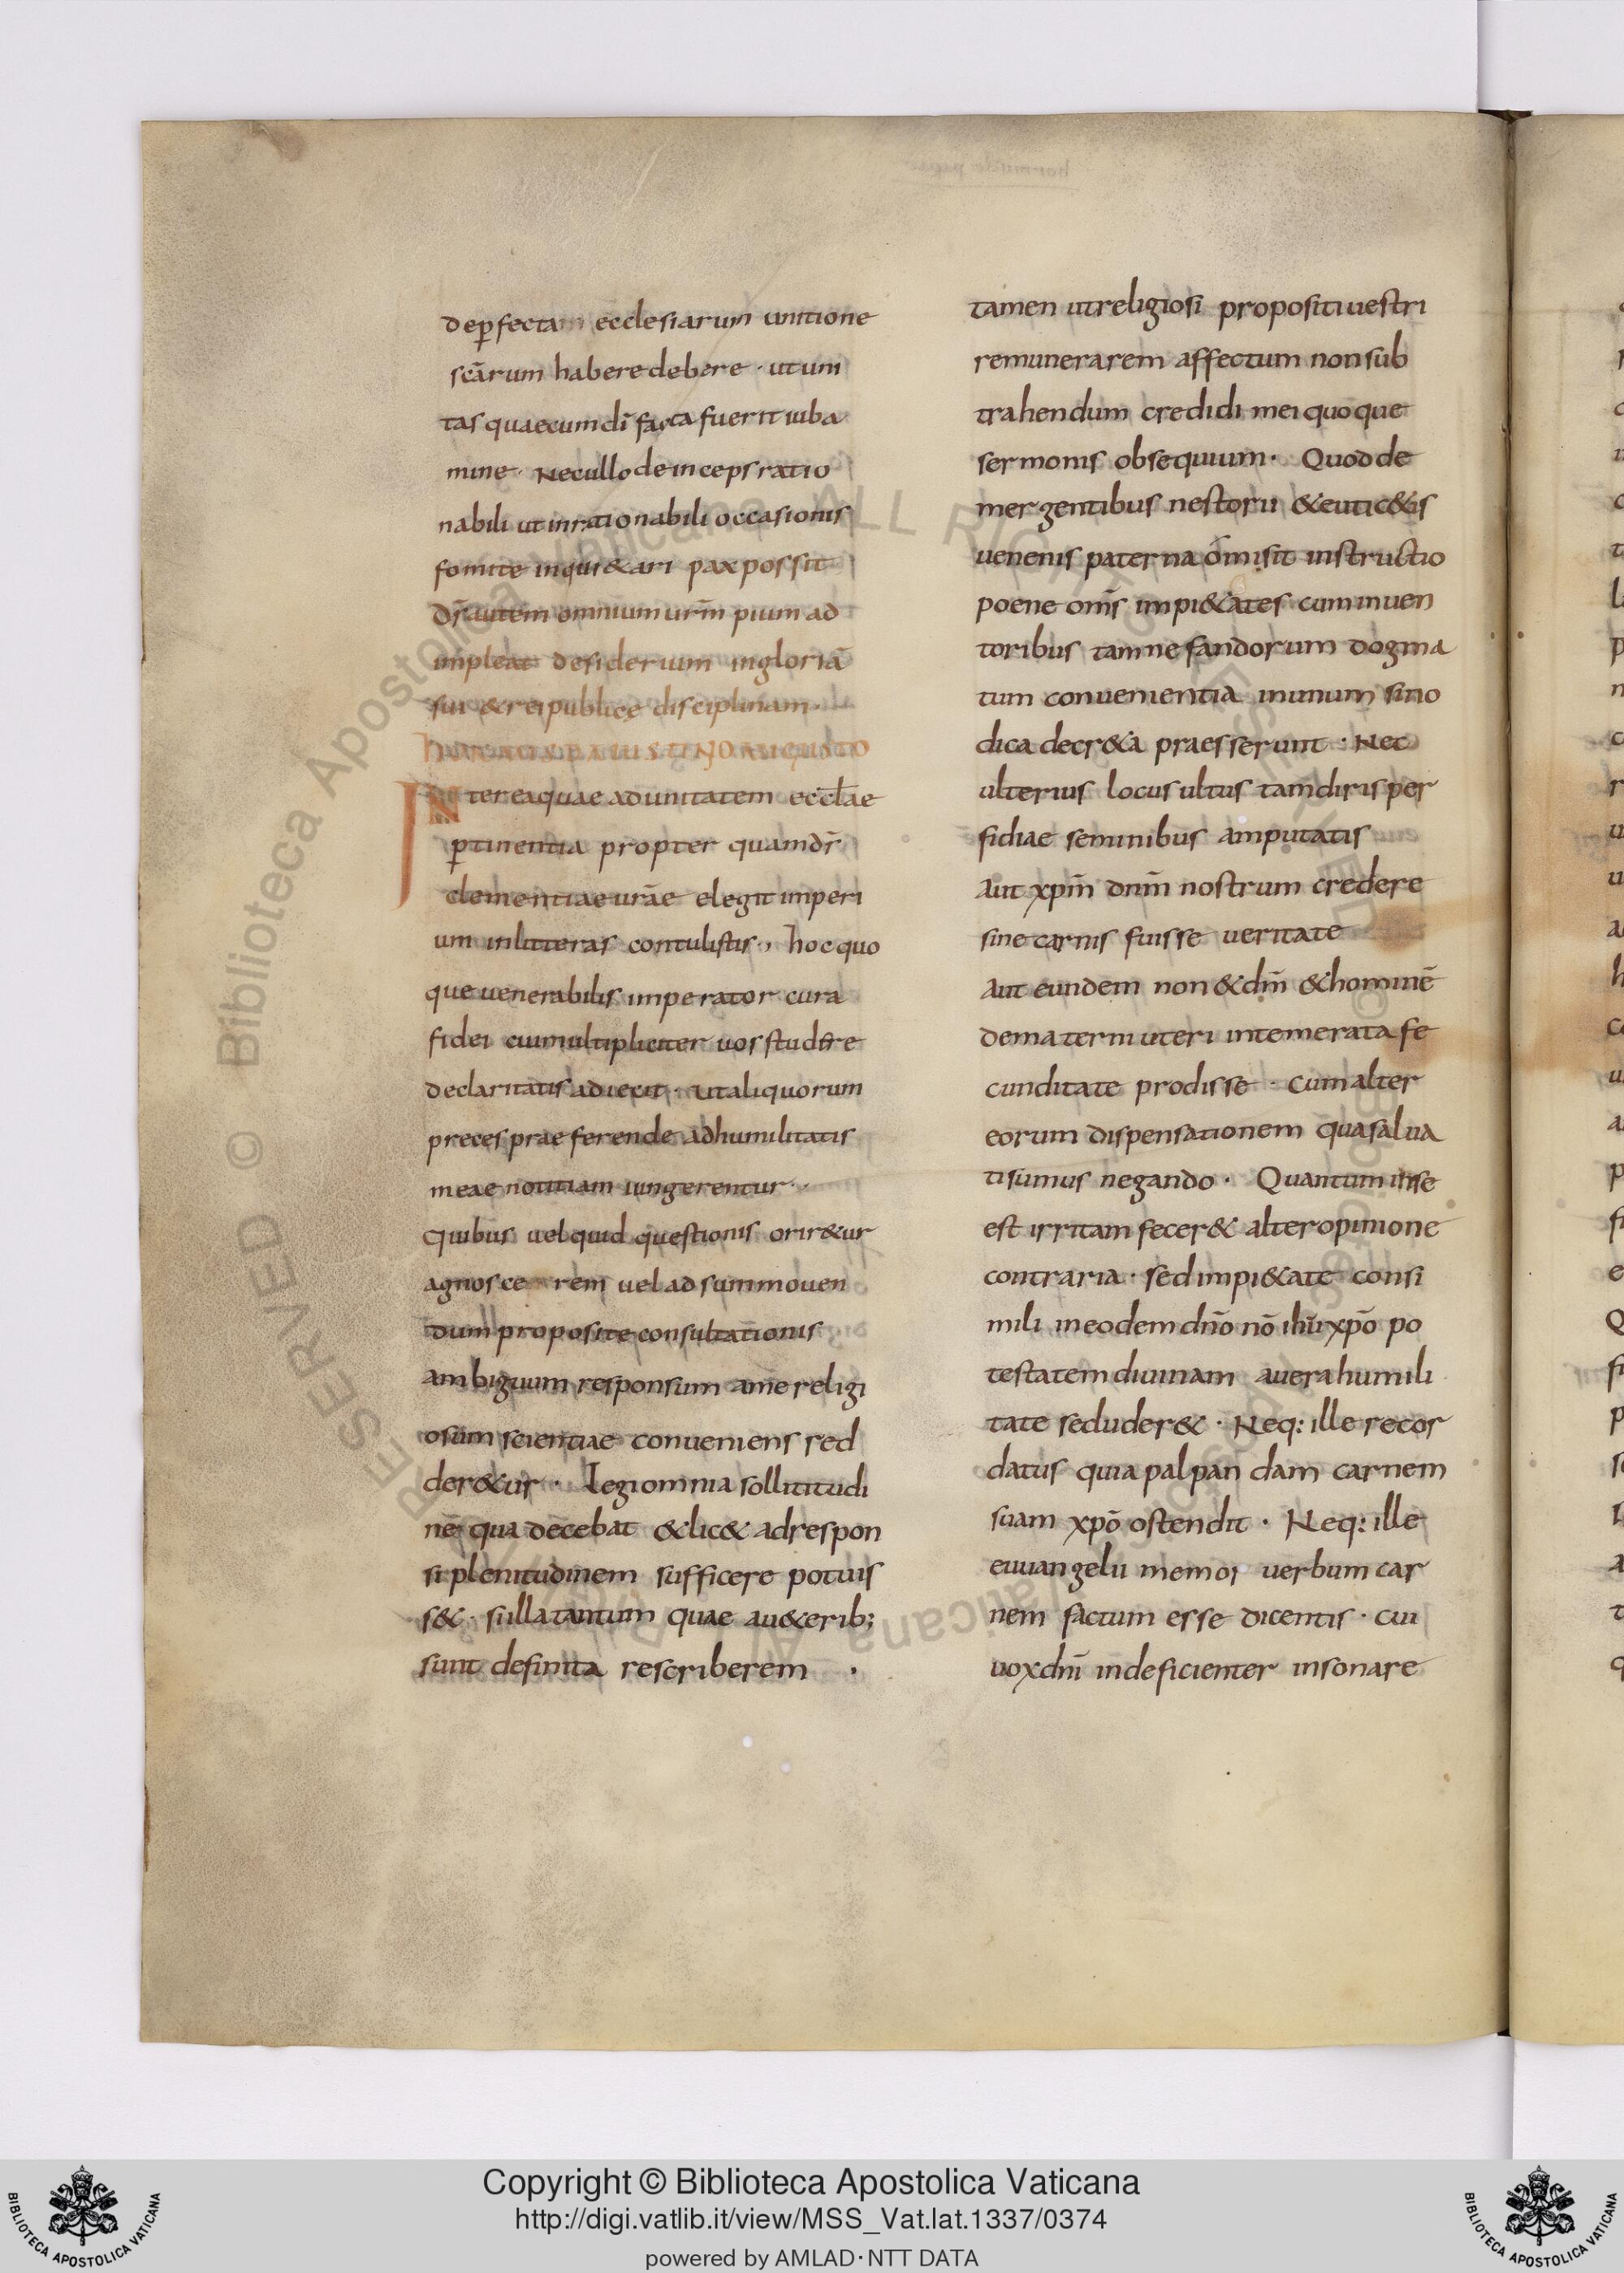 deꝑfectam ecclesiarum unitione
scārum habere debere · ut uni
tas quae cum dī facta fuerit iuba
mine · Nec ullo deinceps ratio
nabili ut inrationabili occasionis
fomite inqui&ari pax possit
Dr̄ autem omnium ur̄m pium ad
impleat desiderium in gloriā
sui & rei publicę disciplinam ·
IUSTINO AUGUSTO
INter ea quae ad unitatem eccƚae
ꝑtinentia propter quam dr̄
clementiae urāe elegit imperi
um in litteras contulistis, hoc quo
que uenerabilis imperator cura
fidei cui multipliciter uos
de claritatis adiecit · ut aliquorum
preces prae ferende ad humilitatis
meae notitiam iungerentur ·
Quibus uel quid questionis orir&ur
agnosce rem uel ad summouen
dum proposite consultationis
ambiguum responsum a me religi
osum scientiae conueniens red
der&ur · Legi omnia sollititudi
nē qua decebat & lic& ad respon
si plenitudinem sufficere potuis
s& · si illa tantum quae au&erib;
sunt definita rescriberem ·
tamen ut religiosi propositi uestri
remunerarem affectum non sub
trahendum credidi mei quoque
sermonis obsequium · Quod de
mergentibus nestorii & eutic&is
uenenis paterna omisit instructio
poene om̄s impi&ates cum inuen
toribus tam nefandorum dogma
tum conuenientia in unum sino
dica decr&a praesserunt · Nec
ulterius locus ultus tam diris per
fidiae seminibus amputatis
Aut xpm̄ dnm̄ nostrum credere
sine carnis fuisse ueritate
Aut eundem non & dm̄ & hominē
de materni uteri intemerata fe
cunditate prodisse · Cum alter
eorum dispensationem qua salua
ti sumus negando · Quantum in se
est irritam fecer& alter opinione
contraria · sed impi&ate consi
mili in eodem dnō nō ihū xpō po
testatem diuinam a uera humili
tate seduder& · Neq: ille recor
datus quia palpan dam carnem
suam xpō ostendit · Neq: ille
euuangelii memor uerbum car
nem factum esse dicentis · cui
uox dnī indeficienter insonare
Copyright © Biblioteca Apostolica Vaticana
http://digi.vatlib.it/view/MSS_Vat.lat.1337/0374
powered by AMLAD·NTT DATA
BIBLIOTECA APOSTOLICA VATICANA
BIBLIOTECA APOSTOLICA VATICANA